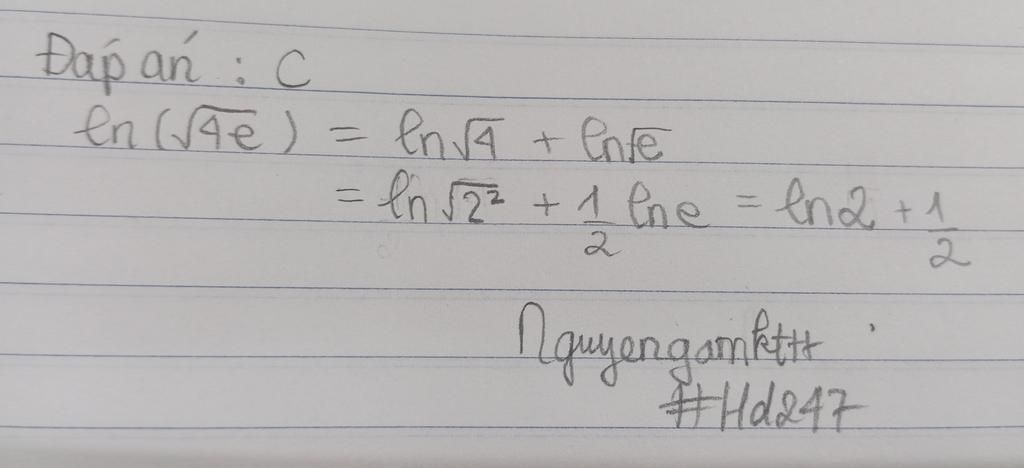 Đáp án : C
ln(√4e) = ln√4 + ln√e
= ln√2² + 1/2 lne = ln2 + 1/2
Nguyengamkttt
#Hd247